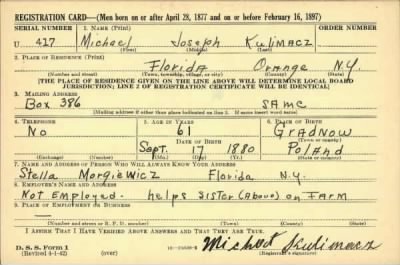 REGISTRATION CARD—(Men born on or after April 28, 1877 and on or before February 16, 1897)
SERIAL NUMBER 1. NAME (Print) ORDER NUMBER
U 417 Michael Joseph Kulimacz
(First) (Middle) (Last)
2. PLACE OF RESIDENCE (Print)
Florida Orange N.Y.
(Number and street) (Town, township, village, or city) (County) (State)
[THE PLACE OF RESIDENCE GIVEN ON THE LINE ABOVE WILL DETERMINE LOCAL BOARD
JURISDICTION; LINE 2 OF REGISTRATION CERTIFICATE WILL BE IDENTICAL]
3. MAILING ADDRESS
Box 386 SAME
[Mailing address if other than place indicated on line 2. If same insert word same]
4. TELEPHONE 5. AGE IN YEARS 6. PLACE OF BIRTH
No 61 Gradnow
DATE OF BIRTH (Town or county)
Sept. 17 1880 Poland
(Exchange) (Number) (Mo.) (Day) (Yr.) (State or country)
7. NAME AND ADDRESS OF PERSON WHO WILL ALWAYS KNOW YOUR ADDRESS
Stella Morgiewicz Florida N.Y.
8. EMPLOYER'S NAME AND ADDRESS
Not Employed. helps Sister (Above) on Farm
9. PLACE OF EMPLOYMENT OR BUSINESS
(Number and street or R. F. D. number) (Town) (County) (State)
I AFFIRM THAT I HAVE VERIFIED ABOVE ANSWERS AND THAT THEY ARE TRUE.
D. S. S. Form 1
(Revised 4-1-42) (over) Michael Kulimacz
(Registrant's signature)